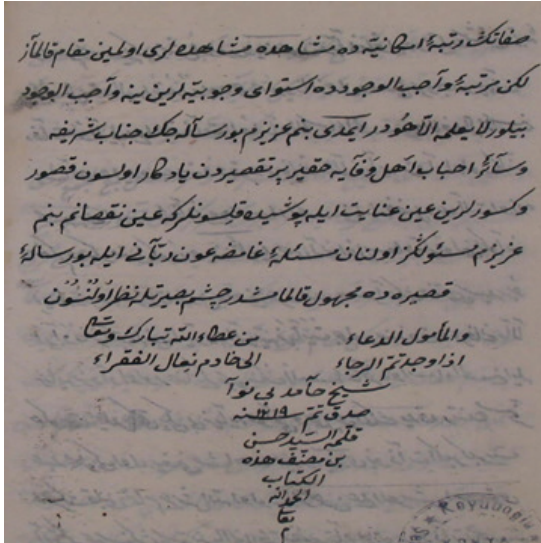 صفاتك رتبهٔ امكانيّه ده مشاهده مشاهده لرى اولمين مقام قالماز
لكن مرتبهٔ وآجب الوجودده استواى وجوبيّه لرين ينه وآجب الوجود
بيلور لا يعلمه الّا هُو در ايمدى بنم عزيزم بو رسآله جك جناب شريفه
وسآئر احباب اهل وفآيه حقير پر تقصيردن يادكار اولسون قصور
وكسورلرين عين عنايت ايله پوشيده قلسونلر كه عين نقصانم بنم
عزيزم مسئولكز اولنان مسئلهٔ غامضه عون ربّآنى ايله بو رسالهٔ
قصيره ده مجهول قالمامشدر چشم بصيرتله نظر اولُنسُون
والمأمول الدعاء من عطاء الله تبارك وتعالى
اذا وجدتم الرجاء الى خادم نعال الفقراء
شيخ حآمد بى نوآ
صدق تم سنه ١٢١٩
قلم السيد حسن
بن مصنّف هذه
الكتاب
الحمد لله
تعالى
م